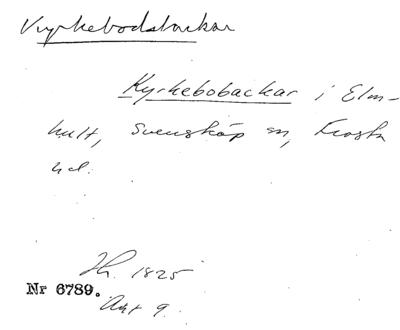 Kyrkebodsbackar
Kyrkebobackar i Elm-
hult, Svensköp sn, Frosta
hd.
Th. 1825
Nr 6789.
Akt 9.